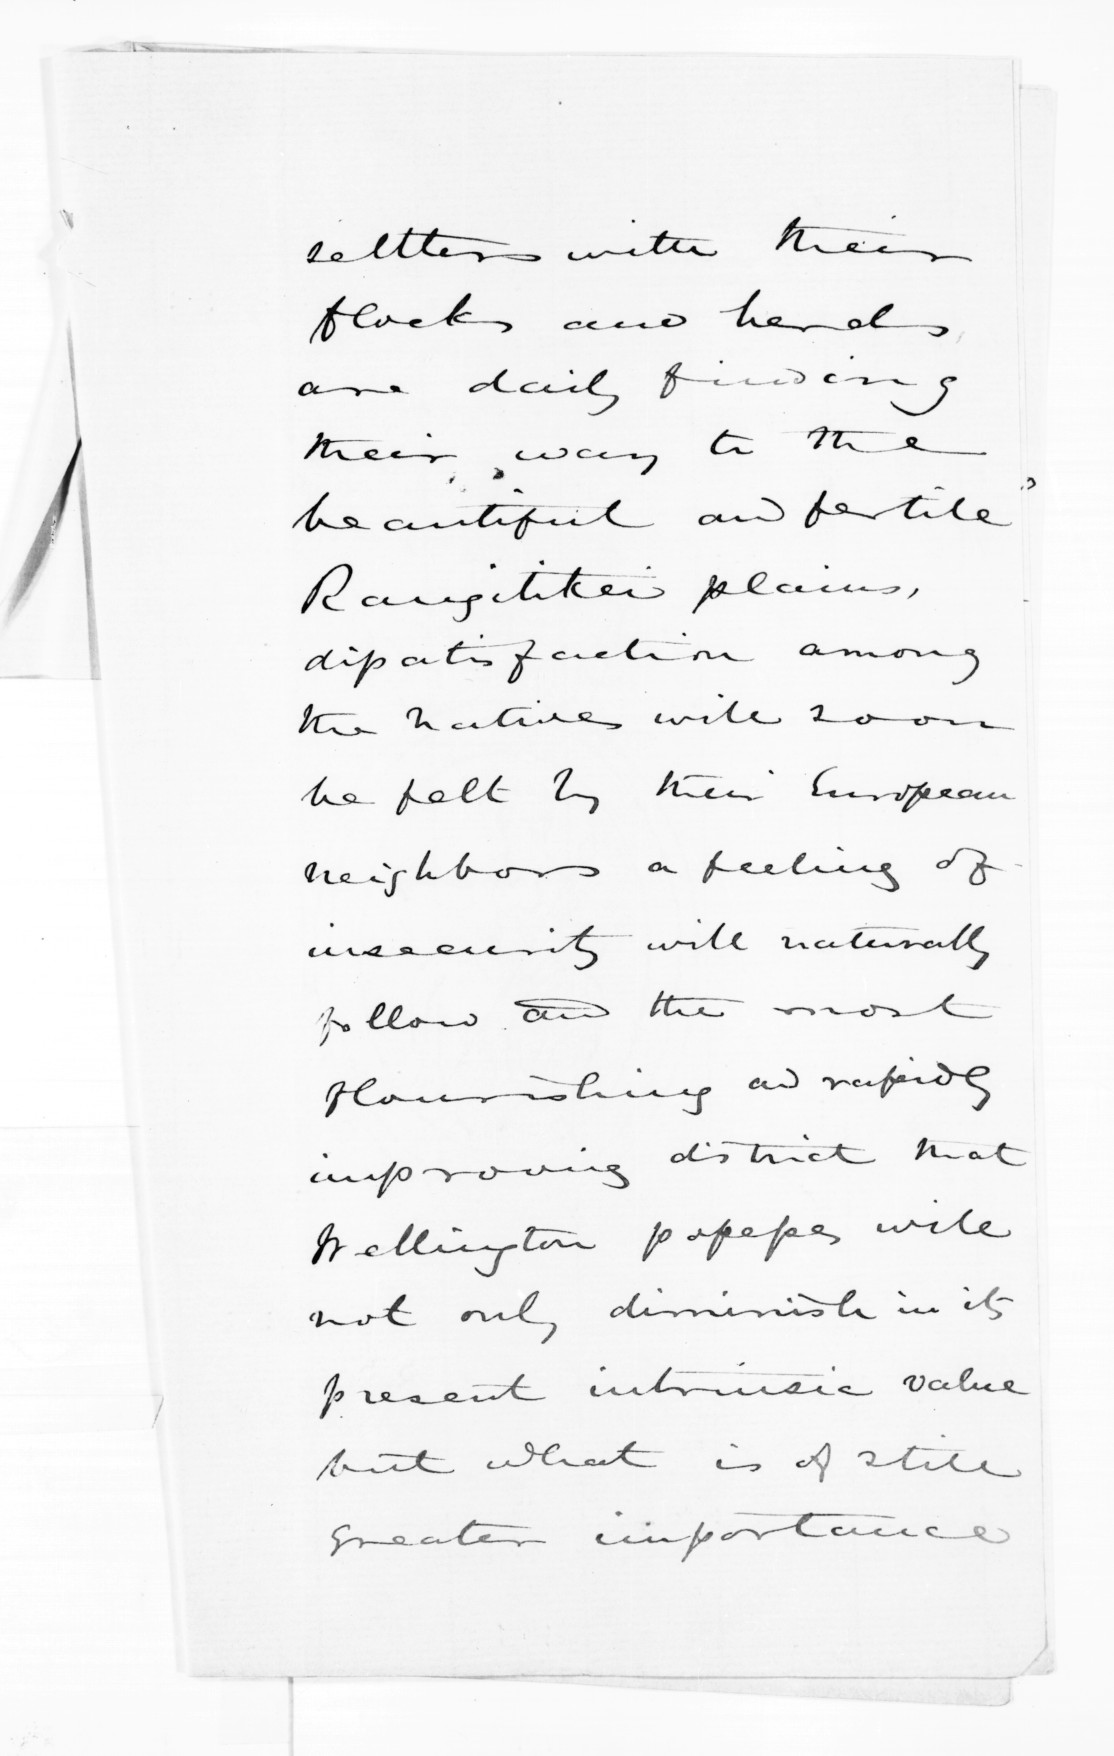 settlers with their
flocks and herds
are daily finding
their way to the
beautiful and fertile
Rangitikei plains,
dissatisfaction among
the natives will soon
be felt by their European
neighbors a feeling of
insecurity will naturally
follow and the most
flourishing and rapidly
improving district that
Wellington possesses will
not only diminish in its
present intrinsic value
but what is of still
greater importance